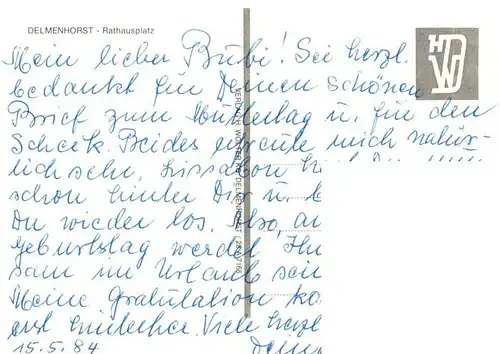 DELMENHORST - Rathausplatz
HDW
Mein lieber Bubi! Sei herzl.
bedankt für Deinen schönen
Brief zum Muttertag u. für den
Scheck. Beides freute mich natür-
lich sehr. Lissabon
schon hinter Dir u.
Du wieder los. Also, an
Geburtstag werdet Ihr
sam im Urlaub sein
Meine Gratulation ko
erst hinterher. Viele herzl
15.5.84